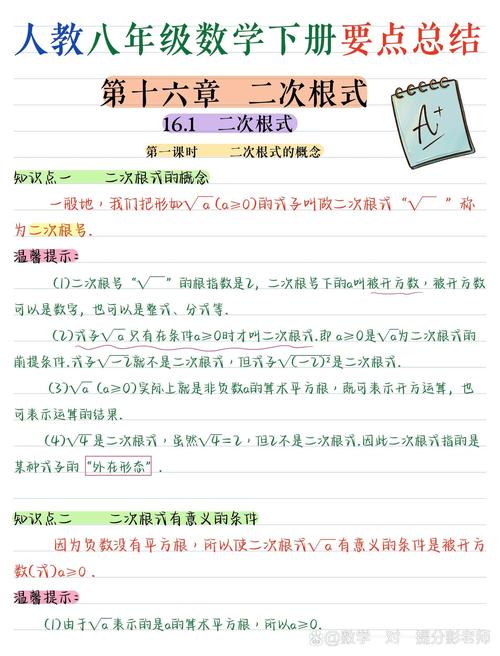 人教八年级数学下册要点总结
A+
第十六章 二次根式
16.1 二次根式
第一课时 二次根式的概念
知识点一 二次根式的概念
一般地，我们把形如√a(a≥0)的式子叫做二次根式“√ ”称
为二次根号.
温馨提示:
(1)二次根号“√ ”的根指数是2，二次根号下的a叫被开方数，被开方数
可以是数字，也可以是整式、分式等.
(2)式子√a只有在条件a≥0时才叫二次根式.即a≥0是√a为二次根式的
前提条件.式子√-2就不是二次根式，但式子√(-2)²是二次根式.
(3)√a(a≥0)实际上就是非负数a的算术平方根，既可表示开方运算，也
可表示运算的结果.
(4)√4是二次根式，虽然√4=2，但2不是二次根式.因此二次根式指的是
某种式子的“外在形态”.
知识点二 二次根式有意义的条件
因为负数没有平方根，所以使二次根式√a有意义的条件是被开方
数(式)a≥0.
温馨提示:
(1)由于√a表示的是a的算术平方根，所以a≥0.
@数学 对 提分彭老师